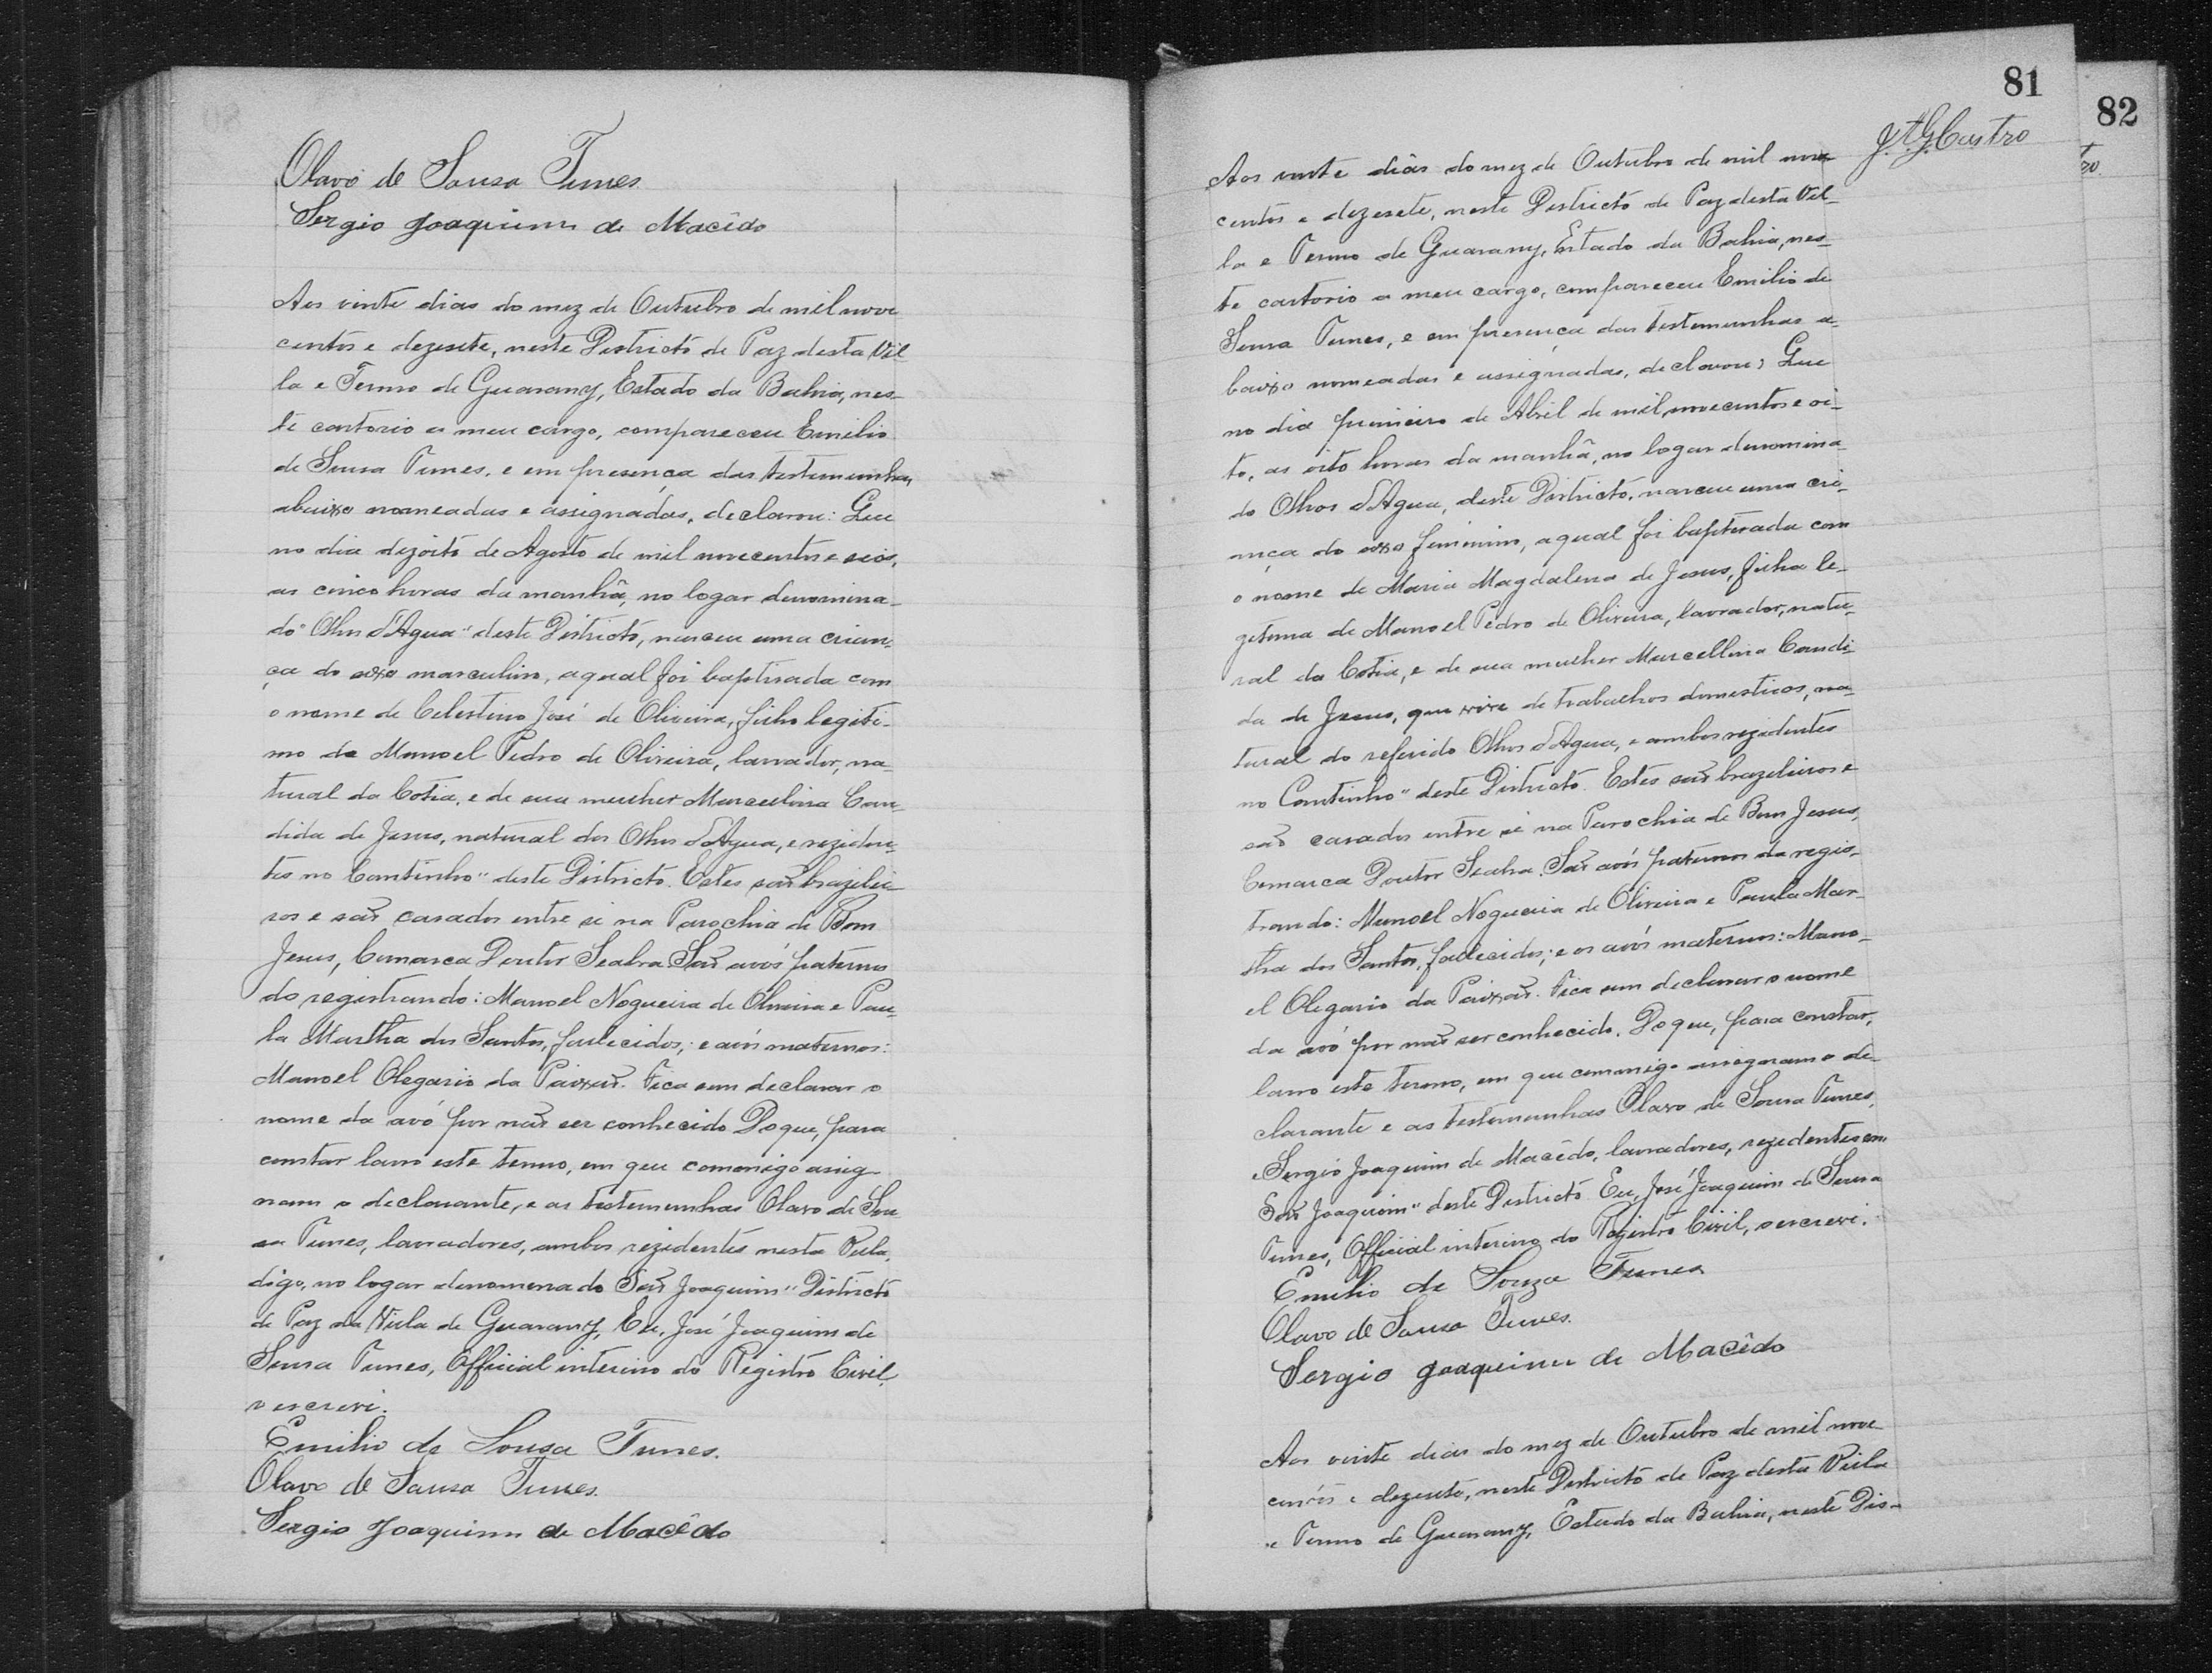 Olavo de Sousa Tunes
Sergio Joaquim de Macêdo
Aos vinte dias do mez de Outubro de mil nove
centos e dezesete, neste Districto de Paz desta Vil
la e Termo de Guarany, Estado da Bahia, nes-
te cartorio a meu cargo, compareceu Emilio
de Sousa Tunes, e em presença das testemunhas
abaixo nomeadas e assignadas, declarou: Que
no dia dezoito de Agosto de mil novecentos e seis,
as cinco horas da manhã, no logar denomina-
do "Olhos d'Agua" deste Districto, nasceu uma crian-
ça do sexo masculino, a qual foi baptisada com
o nome de Celestino José de Oliveira, filho legiti-
mo de Manoel Pedro de Oliveira, lavrador, na-
tural da Cotia, e de sua mulher Marcellina Can-
dida de Jesus, natural dos Olhos d'Agua, e reziden-
tes no Cantinho" deste Districto. Estes são brazilei-
ros e são casados entre si na Parochia de Bom
Jesus, Comarca Doutor Seabra. São avós paternos
do registrando: Manoel Nogueira de Oliveira e Pau-
la Martha dos Santos, fallecidos; e avós maternos:
Manoel Olegario da Paixão. Fica sem declarar o
nome da avó por não ser conhecido. Do que, para
constar lavro este termo, em que commigo assig-
nam o declarante, e as testemunhas Olavo de Sou
sa Tunes, lavradores, ambos rezidentes nesta Villa,
digo, no logar denomenado São Joaquim" Districto
de Paz da Villa de Guarany, Eu, José Joaquim de
Sousa Tunes, Official interino do Registro Civil,
o escrevi.
Emilio de Sousa Tunes.
Olavo de Sousa Tunes.
Sergio Joaquim de Macêdo
81
82
J. A. G. Castro
ro.
Aos vinte dias do mez de Outubro de mil nove
centos e dezesete, neste Districto de Paz desta Vil-
la e Termo de Guarany, Estado da Bahia, nes-
te cartorio a meu cargo, compareceu Emilio de
Sousa Tunes, e em presença das testemunhas a-
baixo nomeadas e assignadas, declarou: Que
no dia primeiro de Abril de mil novecentos e oi-
to, as oito horas da manhã, no logar denomina-
do Olhos d'Agua, deste Districto, nasceu uma cri-
ança do sexo feminino, a qual foi baptisada com
o nome de Maria Magdalena de Jesus, filha le-
gitima de Manoel Pedro de Oliveira, lavrador, natu-
ral da Cotia, e de sua mulher Marcellina Candi-
da de Jesus, que vive de trabalhos domesticos, na-
tural do referido Olhos d'Agua, e ambos rezidentes
no Cantinho" deste Districto. Estes são brazileiros e
são casados entre si na Parochia de Bom Jesus,
Comarca Doutor Seabra. São avós paternos da regis-
trando: Manoel Nogueira de Oliveira e Paula Mar-
tha dos Santos, fallecidos; e os avós maternos: Mano-
el Olegario da Paixão. Fica sem declarar o nome
da avó por não ser conhecido. Do que, para constar,
lavro este termo, em que commigo assignam o de-
clarante e as testemunhas Olavo de Sousa Tunes,
Sergio Joaquim de Macêdo, lavradores, rezidentes em
São Joaquim" deste Districto. Eu, José Joaquim de Sousa
Tunes, Official interino do Registro Civil, o escrevi.
Emilio de Souza Tunes
Olavo de Sousa Tunes.
Sergio Joaquim de Macêdo
Aos vinte dias do mez de Outubro de mil nove
centos e dezesete, neste Districto de Paz desta Villa
e Termo de Guarany, Estado da Bahia, neste Dis-